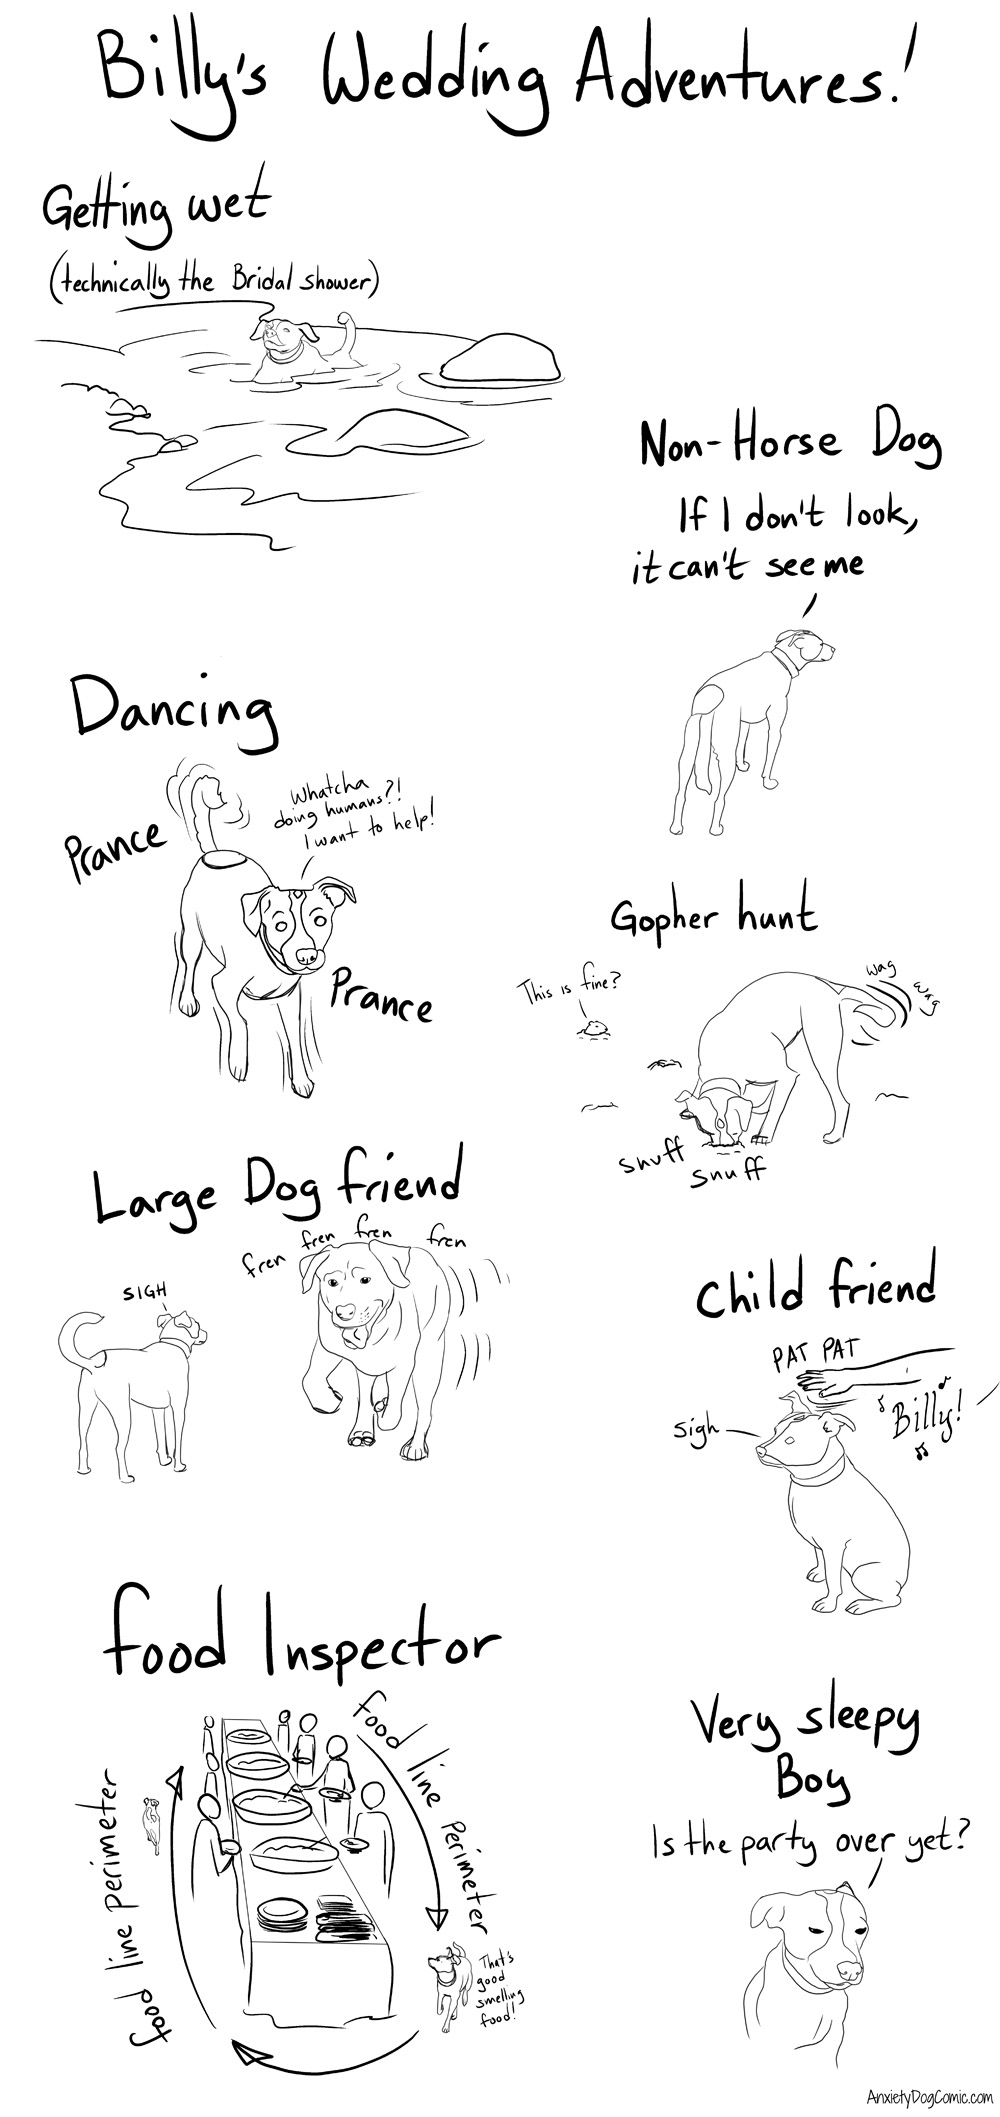 Billy's Wedding Adventures!
Getting wet
(technically the Bridal shower)
Non-Horse Dog
If I don't look,
it can't see me
Dancing
Prance
Whatcha
doing humans?!
I want to help!
Prance
Gopher hunt
This is fine?
wag
wag
snuff
snuff
Large Dog friend
fren fren fren fren
SIGH
Child friend
PAT PAT
Billy!
sigh
Food Inspector
food line perimeter
food line perimeter
That's
good
smelling
food!
Very sleepy
Boy
Is the party over yet?
AnxietyDogComic.com